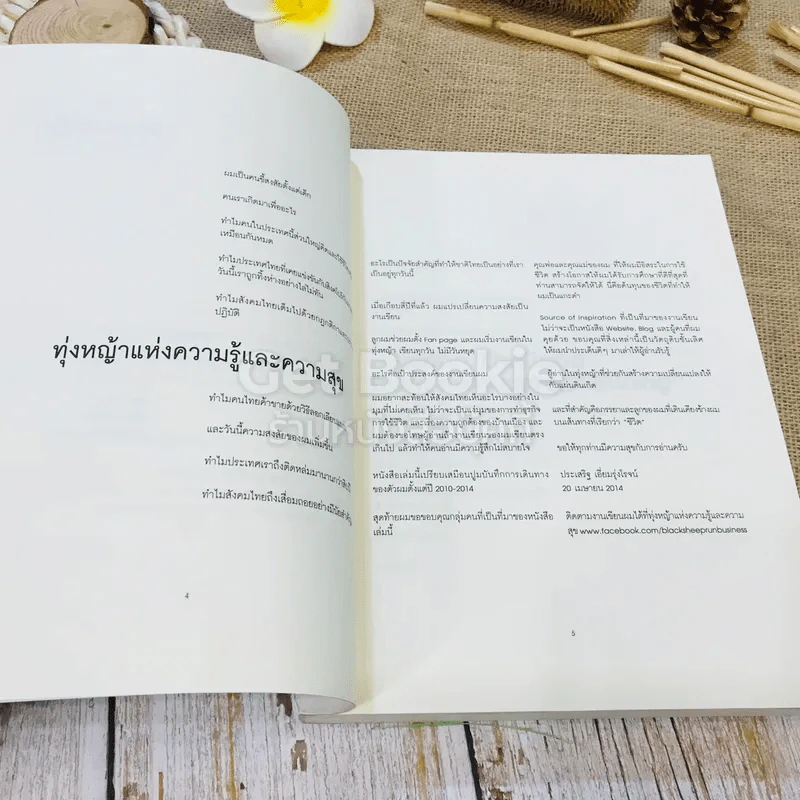 ผมเป็นคนขี้สงสัยตั้งแต่เด็ก
คนเราเกิดมาเพื่ออะไร
ทำไมคนในประเทศนี้ส่วนใหญ่คิดและใช้ชีวิต
เหมือนกันหมด
ทำไมประเทศไทยที่เคยแข่งขันกับสิงคโปร์
วันนี้เราถูกทิ้งห่างอย่างไล่ไม่ทัน
ทำไมสังคมไทยเต็มไปด้วยกฎกติกา
ปฏิบัติ
ทุ่งหญ้าแห่งความรู้และความสุข
ทำไมคนไทยค้าขายด้วยวิธีลอกเลียน
และวันนี้ความสงสัยของผมเพิ่มขึ้น
ทำไมประเทศเราถึงติดหล่มมานานกว่าสิบปี
ทำไมสังคมไทยถึงเสื่อมถอยอย่างมีนัยสำคัญ
4
อะไรเป็นปัจจัยสำคัญที่ทำให้ชาติไทยเป็นอย่างที่เรา
เป็นอยู่ทุกวันนี้
เมื่อเกือบสี่ปีที่แล้ว ผมแปรเปลี่ยนความสงสัยเป็น
งานเขียน
ลูกผมช่วยผมตั้ง Fan page และผมเริ่มงานเขียนใน
ทุ่งหญ้า เขียนทุกวัน ไม่มีวันหยุด
อะไรคือเป้าประสงค์ของงานเขียนผม
ผมอยากสะท้อนให้สังคมไทยเห็นอะไรบางอย่างใน
มุมที่ไม่เคยเห็น ไม่ว่าจะเป็นแง่มุมของการทำธุรกิจ
การใช้ชีวิต และเรื่องความถูกต้องของบ้านเมือง และ
ผมต้องขอโทษผู้อ่านถ้างานเขียนของผมเขียนตรง
เกินไป แล้วทำให้คนอ่านมีความรู้สึกไม่สบายใจ
หนังสือเล่มนี้เปรียบเสมือนปูมบันทึกการเดินทาง
ของตัวผมตั้งแต่ปี 2010-2014
สุดท้ายผมขอขอบคุณกลุ่มคนที่เป็นที่มาของหนังสือ
เล่มนี้
คุณพ่อและคุณแม่ของผม ที่ให้ผมมีอิสระในการใช้
ชีวิต สร้างโอกาสให้ผมได้รับการศึกษาที่ดีที่สุดที่
ท่านสามารถจัดให้ได้ นี่คือต้นทุนของชีวิตที่ทำให้
ผมเป็นแกะดำ
Source of inspiration ที่เป็นที่มาของงานเขียน
ไม่ว่าจะเป็นหนังสือ Website, Blog และผู้คนที่ผม
คุยด้วย ขอบคุณที่สิ่งเหล่านี้เป็นวัตถุดิบชั้นเลิศ
ให้ผมนำประเด็นดีๆ มาเล่าให้ผู้อ่านรับรู้
ผู้อ่านในทุ่งหญ้าที่ช่วยกันสร้างความเปลี่ยนแปลงให้
กับแผ่นดินเกิด
และที่สำคัญคือภรรยาและลูกของผมที่เดินเคียงข้างผม
บนเส้นทางที่เรียกว่า “ชีวิต”
ขอให้ทุกท่านมีความสุขกับการอ่านครับ
ประเสริฐ เอี่ยมรุ่งโรจน์
20 เมษายน 2014
ติดตามงานเขียนผมได้ที่ทุ่งหญ้าแห่งความรู้และความ
สุข www.facebook.com/blacksheeprunbusiness
5
Get Bookie